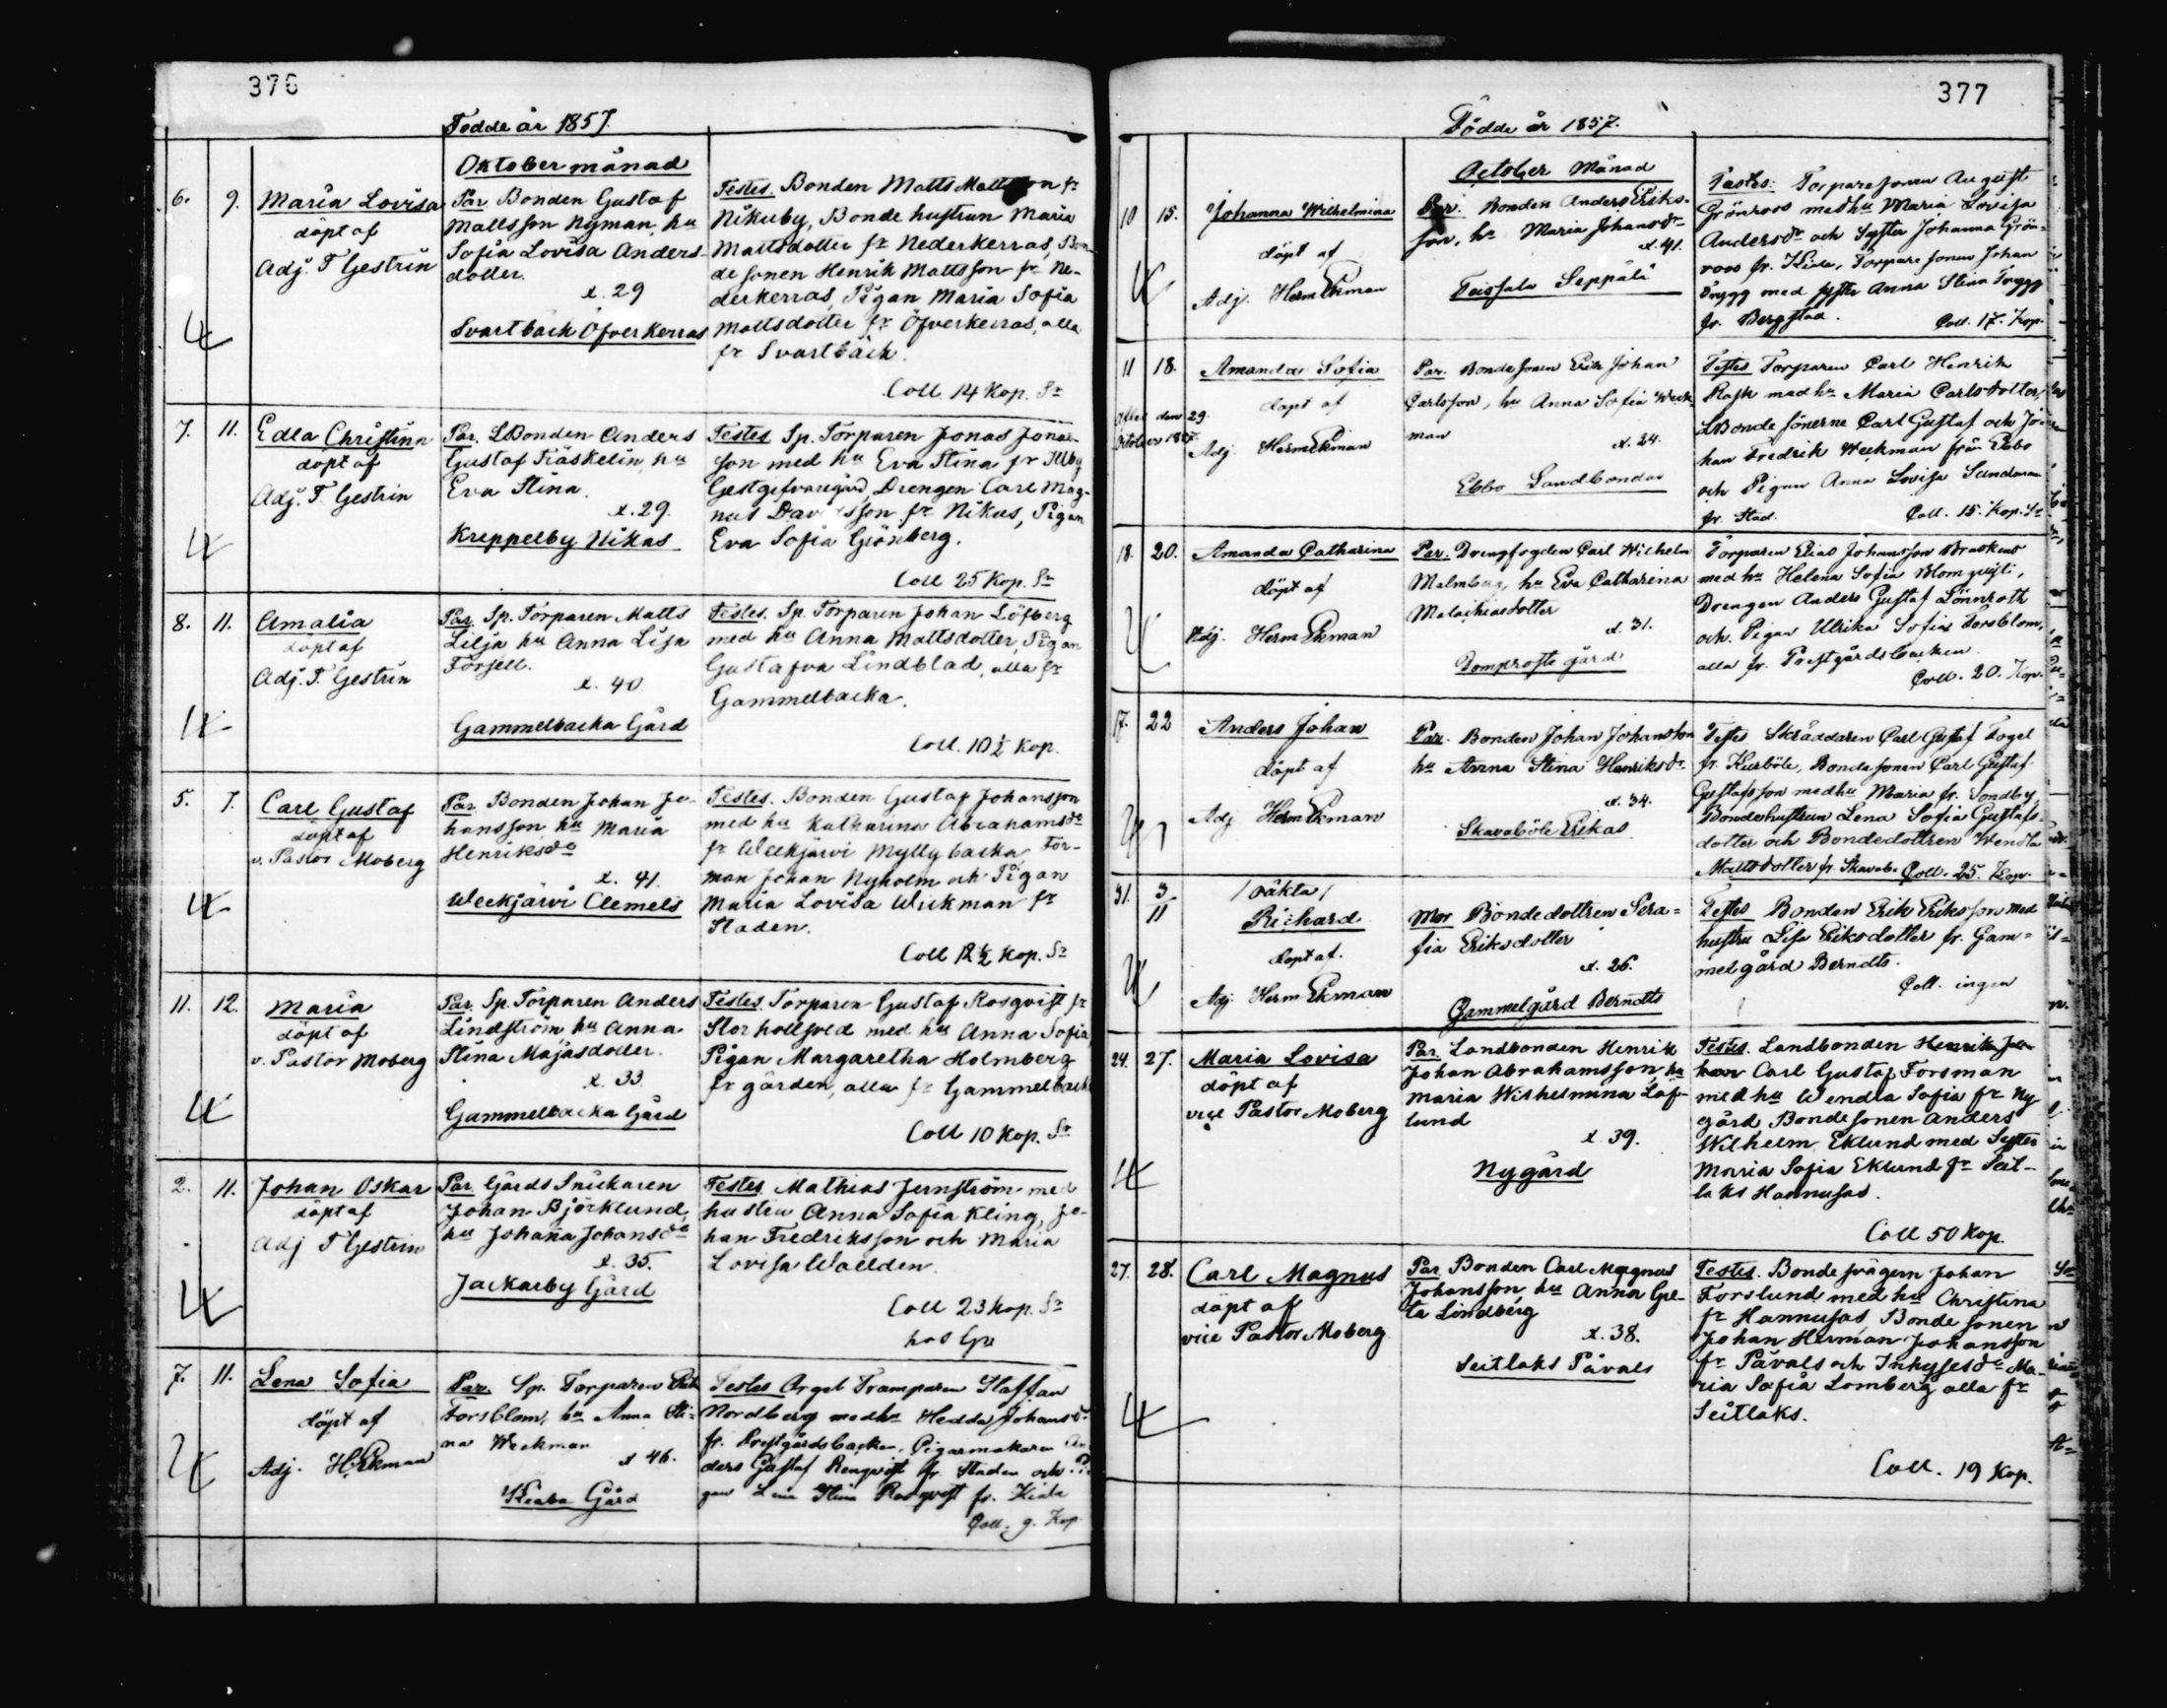 376
Födde år 1857.
Oktober månad
6. 9. Maria Lovisa
döpt af
Adj. F Gestrin
Par. Bonden Gustaf
Mattsson Nyman, hu
Sofia Lovisa Anders-
dotter.
x. 29
Svartbäck Öfverkerras
Testes. Bonden Matts Mattsson fr
Nikuby, Bonde hustrun Maria
Mattsdotter fr Nederkerras, Bon-
de sonen Henrik Mattsson fr Ne-
derkerras, Pigan Maria Sofia
Mattsdotter fr Öfverkerras, alla
fr Svartbäck.
Coll. 14 Kop. Sr
7. 11. Edla Christina
döpt af
Adj. F. Gestrin
Par. LBonden Anders
Gustaf Träskelin, hu
Eva Stina.
x. 29.
Kreppelby Nikas
Testes Sp. Torparen Jonas Jonas-
son med hu Eva Stina fr Illby
Gestgifvaregård, Drengen Carl Mag-
nus Davidsson fr Nikus, Pigan
Eva Sofia Grönberg.
Coll 25 Kop. Sr
8. 11. Amalia
döpt af
Adj. F. Gestrin
Par. Sp. Torparen Matts
Lilja hu Anna Lisa
Forsell.
x. 40
Gammelbacka Gård
Testes. Sp. Torparen Johan Löfberg
med hu Anna Mattsdotter, Pigan
Gustafva Lindblad, alla fr
Gammelbacka.
Coll. 10 ½ Kop.
5. 7. Carl Gustaf
döpt af
v. Pastor Moberg
Par. Bonden Johan Jo-
hansson, hu Maria
Henriksdr
x. 41.
Weckjärvi Clemels
Testes. Bonden Gustaf Johansson
med hu Katharina Abrahamsdr
fr Weckjärvi Myllybacka, For-
man Johan Nyholm och Pigan
Maria Lovisa Wickman fr
Staden.
Coll 12 ½ Kop. Sr
11. 12. Maria
döpt af
v. Pastor Moberg
Par. Sp. Torparen Anders
Lindström, hu Anna
Stina Majasdotter.
x. 33.
Gammelbacka Gård
Testes. Torparen Gustaf Rosqvist fr
Storhollsved med hu Anna Sofia,
Pigan Margaretha Holmberg
fr gården, alla fr Gammelbacka
Coll 10 Kop. Sr
2. 11. Johan Oskar
döpt af
Adj F Gestrin
Par Gårds Snickaren
Johan Björklund,
hu Johana Johansdr
x. 35.
Jackarby Gård
Testes. Mathias Jernström med
hustru Anna Sofia Kling, Jo-
han Fredriksson och Maria
Lovisa Wallden.
Coll 23 kop. Sr
hos Gr
7. 11. Lena Sofia
döpt af
Adj. H. Ekman
Par. Sp. Torparen
Forsblom, hu Anna Sti-
na Weckman
x 46.
Kiala Gård
Testes Orgel Tramparen Staffan
Nordberg med hu Hedda Johansdr
fr. Prestgårdsbacken, Cigarmakaren An-
ders Gustaf Renqvist fr. Staden och Pi-
gan Lena Stina Rosqvist fr. Kiala
Coll. 9. Kop
377
Födde år 1857.
October Månad
10 15. Johanna Wilhelmina
döpt af
Adj. Herm Ekman
Par. Bonden Anders Eriks-
son, hu Maria Johansdr
x. 41.
Teissala Seppälä
Testes: Torparesonen August
Grönroos med hu Maria Lovisa
Andersdr och Syster Johanna Grön-
roos fr. Kiala, Torpare sonen Johan
Trygg med syster Anna Stina Trygg
fr. Bergstad.
Coll. 17. Kop.
11 18. Amanda Sofia
döpt af
Adj. Herm Ekman
den 29.
October 18
Par. Bonde sonen Erik Johan
Carlsson, hu Anna Sofia Week-
man
x. 24.
Ebbo Landbondas
Testes Torparen Carl Henrik
Rask med hu Maria Carlsdotter,
LBonde sönerne Carl Gustaf och Jo-
han Fredrik Weckman från Ebbo
och Pigan Anna Lovisa Sundman
fr. Stad.
Coll. 15. Kop. Sr
18. 20. Amanda Catharina
döpt af
Adj. Herm Ekman
Par. Drengfogden Carl Wilhelm
Malmberg, hu Eva Catharina
Malachiasdotter
x. 31.
Domprosts gård
Torparen Elias Johansson Braskens
med hu Helena Sofia Blomqvist,
Drengen Anders Gustaf Lönnroth
och Pigan Ulrika Sofia Forsblom,
alla fr. Prestgårdsbacken.
Coll. 20. Kop.
17. 22 Anders Johan
döpt af
Adj Herm Ekman
Par. Bonden Johan Johansson
hu Anna Stina Henriksdr
x. 34.
Skavaböle Erikas
Testes Skräddaren Carl Gustaf Fogel
fr. Kurböle, Bonde sonen Carl Gustaf
Gustafsson med hu Maria fr. Sondby,
Bondehustrun Lena Sofia Gustafs-
dotter och Bondedottren Wendla
Mattsdotter fr. Skavab. Coll. 25. Kop.
31. 3/11 /oäkta/
Richard
döpt af.
Adj. Herm Ekman
Mor Bondedottren Sera=
fia Eriksdotter
x. 26.
Gammelgård Berndts
Testes Bonden Erik Eriksson med
hustru Lisa Eriksdotter fr. Gam=
melgård Berndts.
Coll. ingen
24. 27. Maria Lovisa
döpt af
vice Pastor Moberg
Par. Landbonden Henrik
Johan Abrahamsson, hu
Maria Wilhelmina Löf-
lund
x. 39.
Nygård
Testes. Landbonden Henrik Jo
han Carl Gustaf Forsman
med hu Wendla Sofia fr Ny-
gård, Bondesonen Anders
Wilhelm Eklund med Syster
Maria Sofia Eklund fr Seit-
laks Hannusas.
Coll 50 Kop.
27. 28. Carl Magnus
döpt af
vice Pastor Moberg
Par. Bonden Carl Magnus
Johansson, hu Anna Gre-
ta Lindberg
x. 38.
Seitlaks Påvals
Testes. Bonde svågern Johan
Forslund med hu Christina
fr Hannusas, Bonde sonen
Johan Herman Johansson
fr Påvals och Inhysesdr Ma-
ria Sofia Lomberg alla fr
Seitlaks.
Coll. 19 Kop.